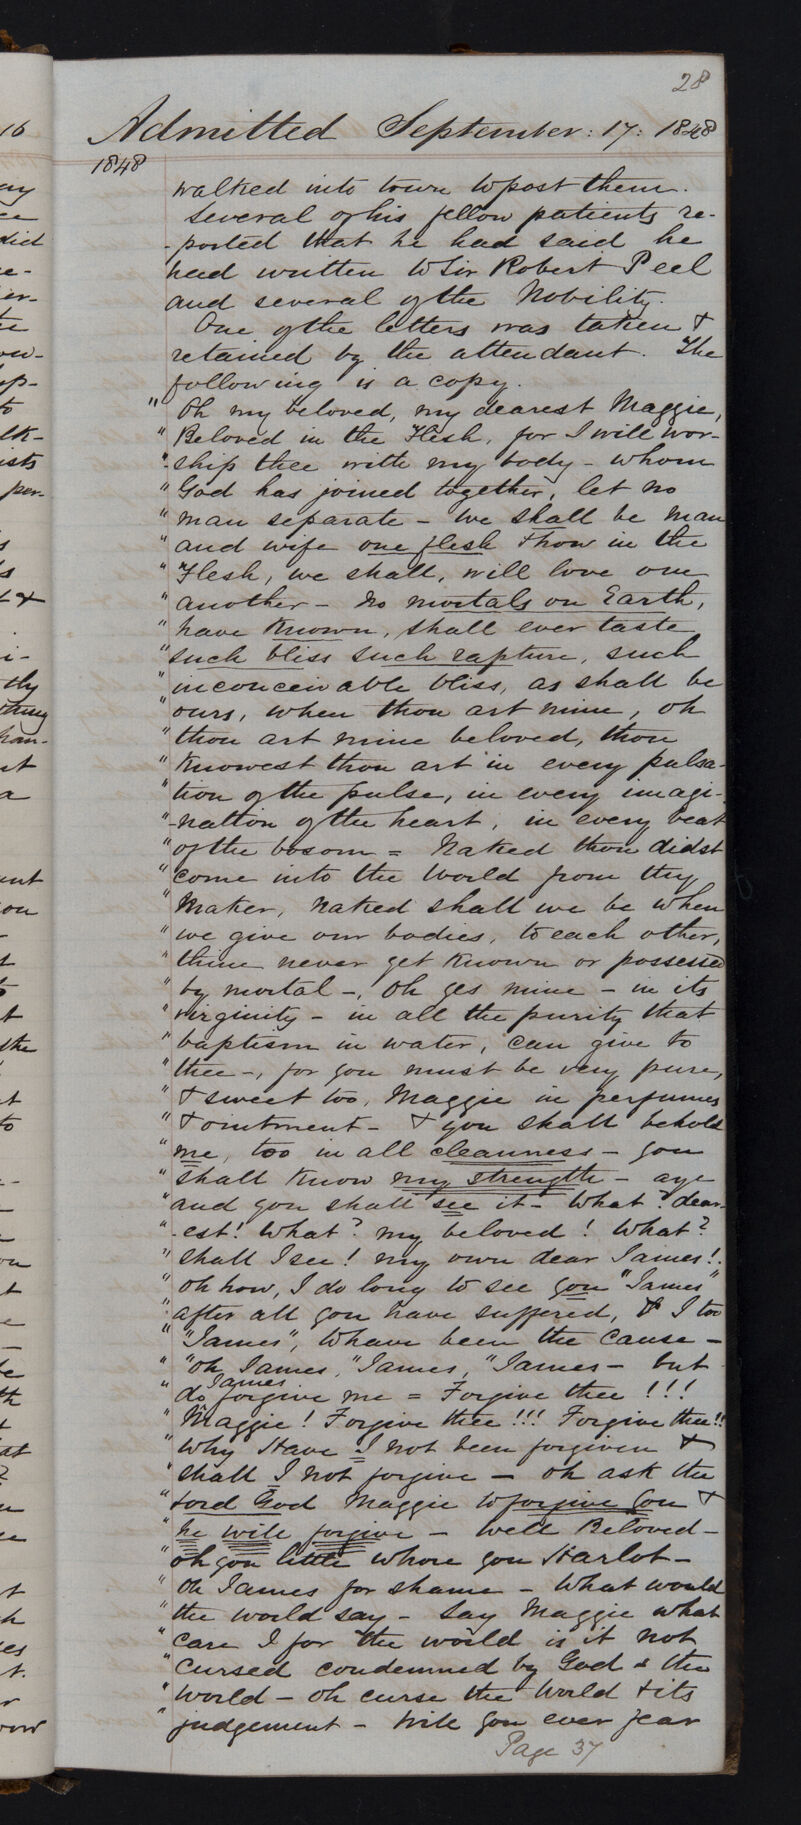 28
Admitted September: 17: 1848
1848
walked into town to post them.
Several of his fellow patients re-
-ported that he had said he
had written to Sir Robert Peel
and several of the Nobility.
One of the letters was taken &
retained by the attendant. The
following is a copy.
" Oh my beloved, my dearest Maggie,
" Beloved in the Flesh, for I will wor-
" -ship thee with my body - whom
" God has joined together, let no
" man separate - we shall be man
" and wife one flesh thow in the
" Flesh, we shall, will love one
" another - no mortals on Earth,
" have known, shall ever taste
" such bliss such rapture, such
" inconceivable bliss, as shall be
" ours, when thou art mine, oh
" thou art mine beloved, thou
" knowest thou art in every pulsa-
" tion of the pulse, in every imagi-
" -nation of the heart, in every beat
" of the bosom = Naked thou didst
" come into the World from thy
" Maker, naked shall we be when
" we give our bodies, to each other,
" thine never yet known or possessed
" by mortal -, Oh yes mine - in its
" virginity - in all the purity that
" baptism in water, can give to
" thee -, for you must be very pure,
" & sweet too, Maggie in perfumes
" & ointment - & you shall behold
" me, too in all cleanness - you
" shall know my strength - aye
" and you shall see it - What? dear-
" -est! What? my beloved! What?
" shall I see! my own dear James!
" oh how, I do long to see you "James"
" after all you have suffered, & I too
" "James", to have been the cause -
" "oh James, "James, "James - but
" do James forgive me = Forgive thee!!!
" Maggie! Forgive thee!!! Forgive thee!!
" Why Have I not been forgiven &
" shall I not forgive - oh ask the
" Lord God Maggie to forgive you &
" he will forgive - Well Beloved -
" oh you little whore you Harlot -
" Oh James for shame - What would
" the world say - Say Maggie what
" care I for the world is it not
" cursed condemned by God & the
" World - oh curse the World & its
" judgement - Will you ever fear
Page 37